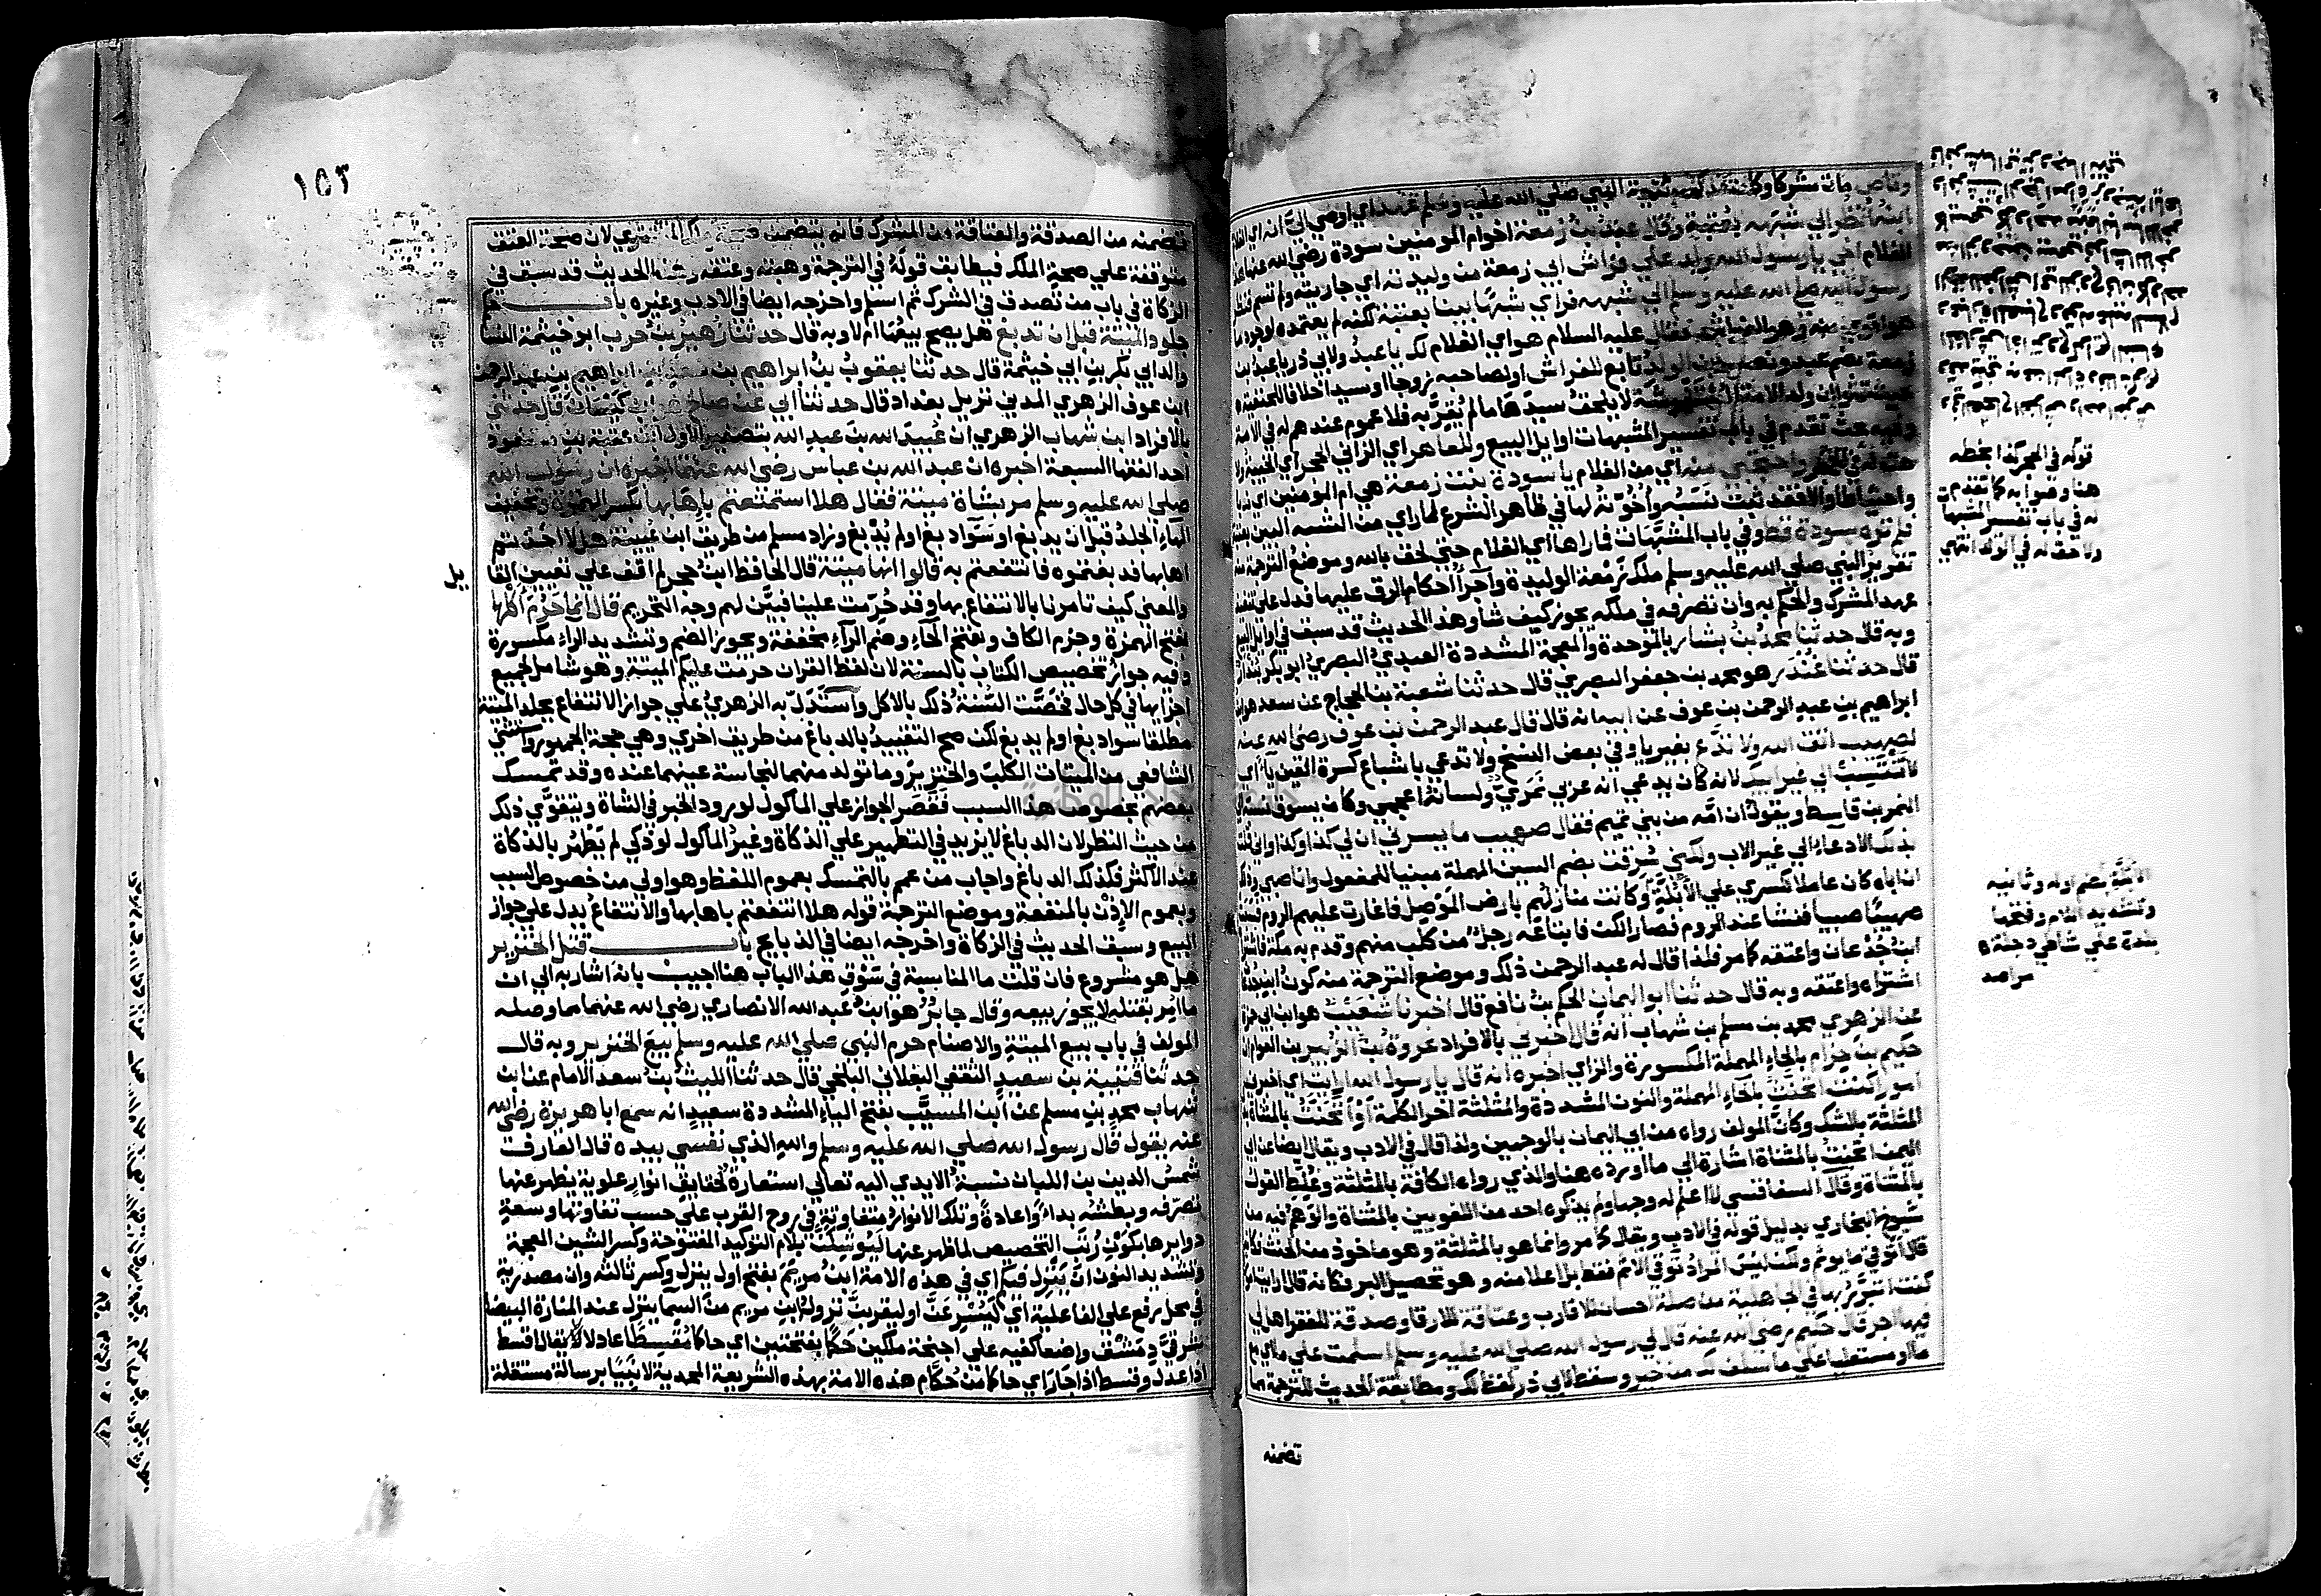 وقاص مات مشركا وكانت قد كسرت ثنية النبي صلي الله عليه وسلم عهد اي اوصي اليّ انه اي الغلام
ابنه انظر الي شبهه بعتبة وقال عبد بن زمعة اخو ام المومنين سودة رضي الله عنها هذا
الغلام اخي يا رسول الله ولد علي فراش ابي زمعة من وليدته اي جاريته ولم تسم فنظر
رسول الله صلي الله عليه وسلم الي شبهه فراي شبها بينا بعتبة لكنه لم يعتمده لوجود ما
هو اقوي منه وهو الفراش فقال عليه السلام هو اي الغلام لك يا عبد ولابي ذر يا عبد بن
زمعة بضم عبد ونصب ابن الولد تابع للفراش اي لصاحبه زوجا او سيدا خلافا للحنفية
حيث قالوا ان ولد الامة المستفرشة لا يلحق سيدها ما لم يقر به فلا عموم عندهم له في الامة
وفيه بحث تقدم في باب تفسير المشبهات اوايل البيع وللعاهر اي الزاني الحجر اي الخيبة ولا
حق له في الولد واحتجبي منه اي من الغلام يا سودة بنت زمعة هي ام المومنين اي ندبا
واحتياطا والا فقد ثبت نسبه واخوته لها في ظاهر الشرع لما راي من الشبه البين بعتبة
فلم تره سودة قط وفي باب المشبهات فما راها اي الغلام حتي لحق بالله وموضع الترجمة منه
تقرير النبي صلي الله عليه وسلم ملك زمعة الوليدة واجرا احكام الرق عليها فدل علي تنفيذ
عهد المشرك والحكم به وان تصرفه في ملكه يجوز كيف شا وهذا الحديث قد سبق في اوايل البيع
وبه قال حدثنا محمد بن بشار بالموحدة والمعجمة المشددة العبدي البصري ابو بكر بندار
قال حدثنا غندر هو محمد بن جعفر البصري قال حدثنا شعبة بن الحجاج عن سعد هو ابن
ابراهيم بن عبد الرحمن بن عوف عن ابيه انه قال قال عبد الرحمن بن عوف رضي الله عنه
لصهيب اتق الله ولا تدع بغير يا وفي بعض النسخ ولا تدعي باشباع كسرة العين يا اي
لا تنتسب الي غير ابيك لانه كان يدعي انه عربي نمري ولسانه اعجمي وكان يسوق نسبه الي
النمر بن قاسط ويقول ان امه من بني تميم فقال صهيب ما يسرني ان لي كذا وكذا واني قلت
ذلك الادعاء الي غير الاب ولكني سرقت بضم السين المهملة مبنيا للمفعول وانا صبي وذلك
ان اباه كان عاملا لكسري علي الابلة وكانت منازلهم بارض الموصل فاغارت عليهم الروم فسبت
صهيبا صبيا فنشا عند الروم فصار الكن فابتاعه رجل من كلب منهم وقدم به مكة فاشتراه
ابن جدعان واعتقه كما مر فلذا قال له عبد الرحمن ذلك وموضع الترجمة منه كون ابن جدعان
اشتراه واعتقه وبه قال حدثنا ابو اليمان الحكم بن نافع قال اخبرنا شعيب هو ابن ابي حمزة
عن الزهري محمد بن مسلم بن شهاب انه قال اخبرني بالافراد عروة بن الزبير بن العوام ان
حكيم بن حزام بالحاء المهملة المكسورة والزاي اخبره انه قال يا رسول الله ارايت اي اخبرني
امورا كنت اتحنث بالحاء المهملة والنون المشددة والمثلثة اخر الكلمة او اتحنت بالمثناة بدل
المثلثة بالشك وكان المولف رواه من ابي اليمان بالوجهين ولذا قال في الادب ويقال ايضا عن ابي
اليمن اتحنت بالمثناة اشارة الي ما اورده هنا والذي رواه الكافة بالمثلثة وغلط القول
بالمثناة وقال السفاقسي لا اعلم له وجها ولم يذكره احد من اللغويين بالمثناة والوهم فيه من
شيوخ البخاري بدليل قوله في الادب ويقال كما مر وانما هو بالمثلثة وهو ماخوذ من الحنث فكانه
قال اتوقي ما يوثم ولكن ليس المراد توقي الاثم فقط بل اعلا منه وهو تحصيل البر فكانه قال ارايت امورا
كنت اتبرر بها في الجاهلية من صلة احسان للاقارب وعتاقة للارقا وصدقة للفقرا هل لي
فيها اجر قال حكيم رضي الله عنه قال لي رسول الله صلي الله عليه وسلم اسلمت علي ما اي مع
ما او مستعليا علي ما سلف لك من خير وسقط لابي ذر لفظ لك ومطابقة الحديث للترجمة بما
تضمنه
قوله في الحجر كذا بخطه
هنا وصوابه كما تقدم
له في باب تفسير المشبهات
ولا حق له في الولد انتهي
الابلة بضم اوله وثانيه
وتشديد اللام وفتحها
بلدة علي شاطي دجلة
مراصد
١٥٣
تضمنه من الصدقة والعتاقة من المشرك فانه يتضمن صحة ملك المشرك لان صحة العتق
متوقفة علي صحة الملك فيطابق قوله في الترجمة وهبته وعتقه وهذا الحديث قد سبق في
الزكاة في باب من تصدق في الشرك ثم اسلم واخرجه ايضا في الادب وغيره باب حكم
جلود الميتة قبل ان تدبغ هل يصح بيعها ام لا وبه قال حدثنا زهير بن حرب ابو خيثمة النسا
والد ابي بكر بن ابي خيثمة قال حدثنا يعقوب بن ابراهيم بن سعد بن ابراهيم بن عبد الرحمن
ابن عوف الزهري المدني نزيل بغداد قال حدثنا ابي عن صالح هو ابن كيسان قال حدثني
بالافراد ابن شهاب الزهري ان عبيد الله بن عبد الله بتصغير الاول ابن عتبة بن مسعود
احد الفقها السبعة اخبره ان عبد الله بن عباس رضي الله عنهما اخبره ان رسول الله
صلي الله عليه وسلم مر بشاة ميتة فقال هلا استمتعتم باهابها بكسر الهمزة وتخفيف
الهاء الجلد قبل ان يدبغ او سواء دبغ او لم يدبغ وزاد مسلم من طريق ابن عيينة هلا اخذتم
اهابها فدبغتموه فانتفعتم به قالوا انها ميتة قال الحافظ ابن حجر لم اقف علي تعيين القا
يل
والمعني كيف تامرنا بالانتفاع بها وقد حرمت علينا فبين لهم وجه التحريم قال انما حرم اكلها
بفتح الهمزة وجزم الكاف وبفتح الحاء وضم الراء مخففة ويجوز الضم وتشديد الراء مكسورة
وفيه جواز تخصيص الكتاب بالسنة لان لفظ القران حرمت عليكم الميتة وهو شامل لجميع
اجزايها في كل حال فخصت السنة ذلك بالاكل واستدل به الزهري علي جواز الانتفاع بجلد الميتة
مطلقا سوا دبغ او لم يدبغ لكن صح التقييد بالدباغ من طريق اخري وهي حجة الجمهور واستثني
الشافعي من الميتات الكلب والخنزير وما تولد منهما لنجاسة عينهما عنده وقد تمسك
بعضهم بخصوص هذا السبب فقصر الجواز علي الماكول لورود الخبر في الشاة ويتقوي ذلك
من حيث النظر لان الدباغ لا يزيد في التطهير علي الذكاة وغير الماكول لو ذكي لم يطهر بالذكاة
عند الاكثر فكذلك الدباغ واجاب من عمم بالتمسك بعموم اللفظ وهو اولي من خصوص السبب
وبعموم الاذن بالمنفعة وموضع الترجمة قوله هلا انتفعتم باهابها والانتفاع يدل علي جواز
البيع وسبق الحديث في الزكاة واخرجه ايضا في الذبايح باب قتل الخنزير
هل هو مشروع فان قلت ما المناسبة في سوق هذا الباب هنا اجيب بانه اشار به الي ان
ما امر بقتله لا يجوز بيعه وقال جابر هو ابن عبد الله الانصاري رضي الله عنهما مما وصله
المولف في باب بيع الميتة والاصنام حرم النبي صلي الله عليه وسلم بيع الخنزير وبه قال
حدثنا قتيبة بن سعيد الثقفي البغلاني البلخي قال حدثنا الليث بن سعد الامام عن ابن
شهاب محمد بن مسلم عن ابن المسيب بفتح الياء المشددة سعيد انه سمع ابا هريرة رضي الله
عنه يقول قال رسول الله صلي الله عليه وسلم والله الذي نفسي بيده قال العارف
شمس الدين بن اللبان نسبة الايدي اليه تعالي استعارة لحقايق انوار علوية يظهر عنها
تصرفه وبطشه بداءً واعادةً وتلك الانوار متفاوتة في روح القرب علي حسب تفاوتها وسعة
دوايرها تكون رتب التخصيص لما ظهر عنها ليوشكن بلام التوكيد المفتوحة وكسر الشين المعجمة
وتشديد النون ان ينزل فيكم اي في هذه الامة ابن مريم بفتح اول ينزل وكسر ثالثه وان مصدرية
في محل رفع علي الفاعلية اي ليسرعن او ليقربن نزول ابن مريم من السما ينزل عند المنارة البيضا
شرقي دمشق واضعا كفيه علي اجنحة ملكين حكما بفتحتين اي حاكما مقسطا عادلا يقال اقسط
اذا عدل وقسط اذا جار اي حاكما من حكام هذه الامة بهذه الشريعة المحمدية لا نبيا برسالة مستقلة